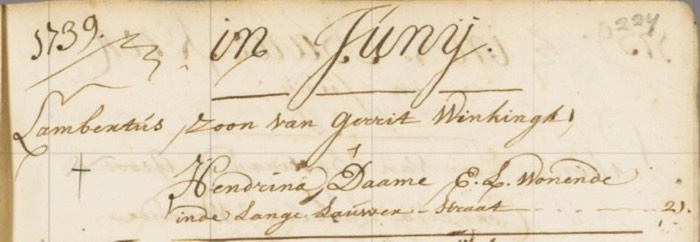 1739. in Junij. 224
Lambertus, zoon van Gerrit Winkingh,
Hendrina, Daame E. L. Wonende
inde Lange Lauwer-Straat - - - - 21.